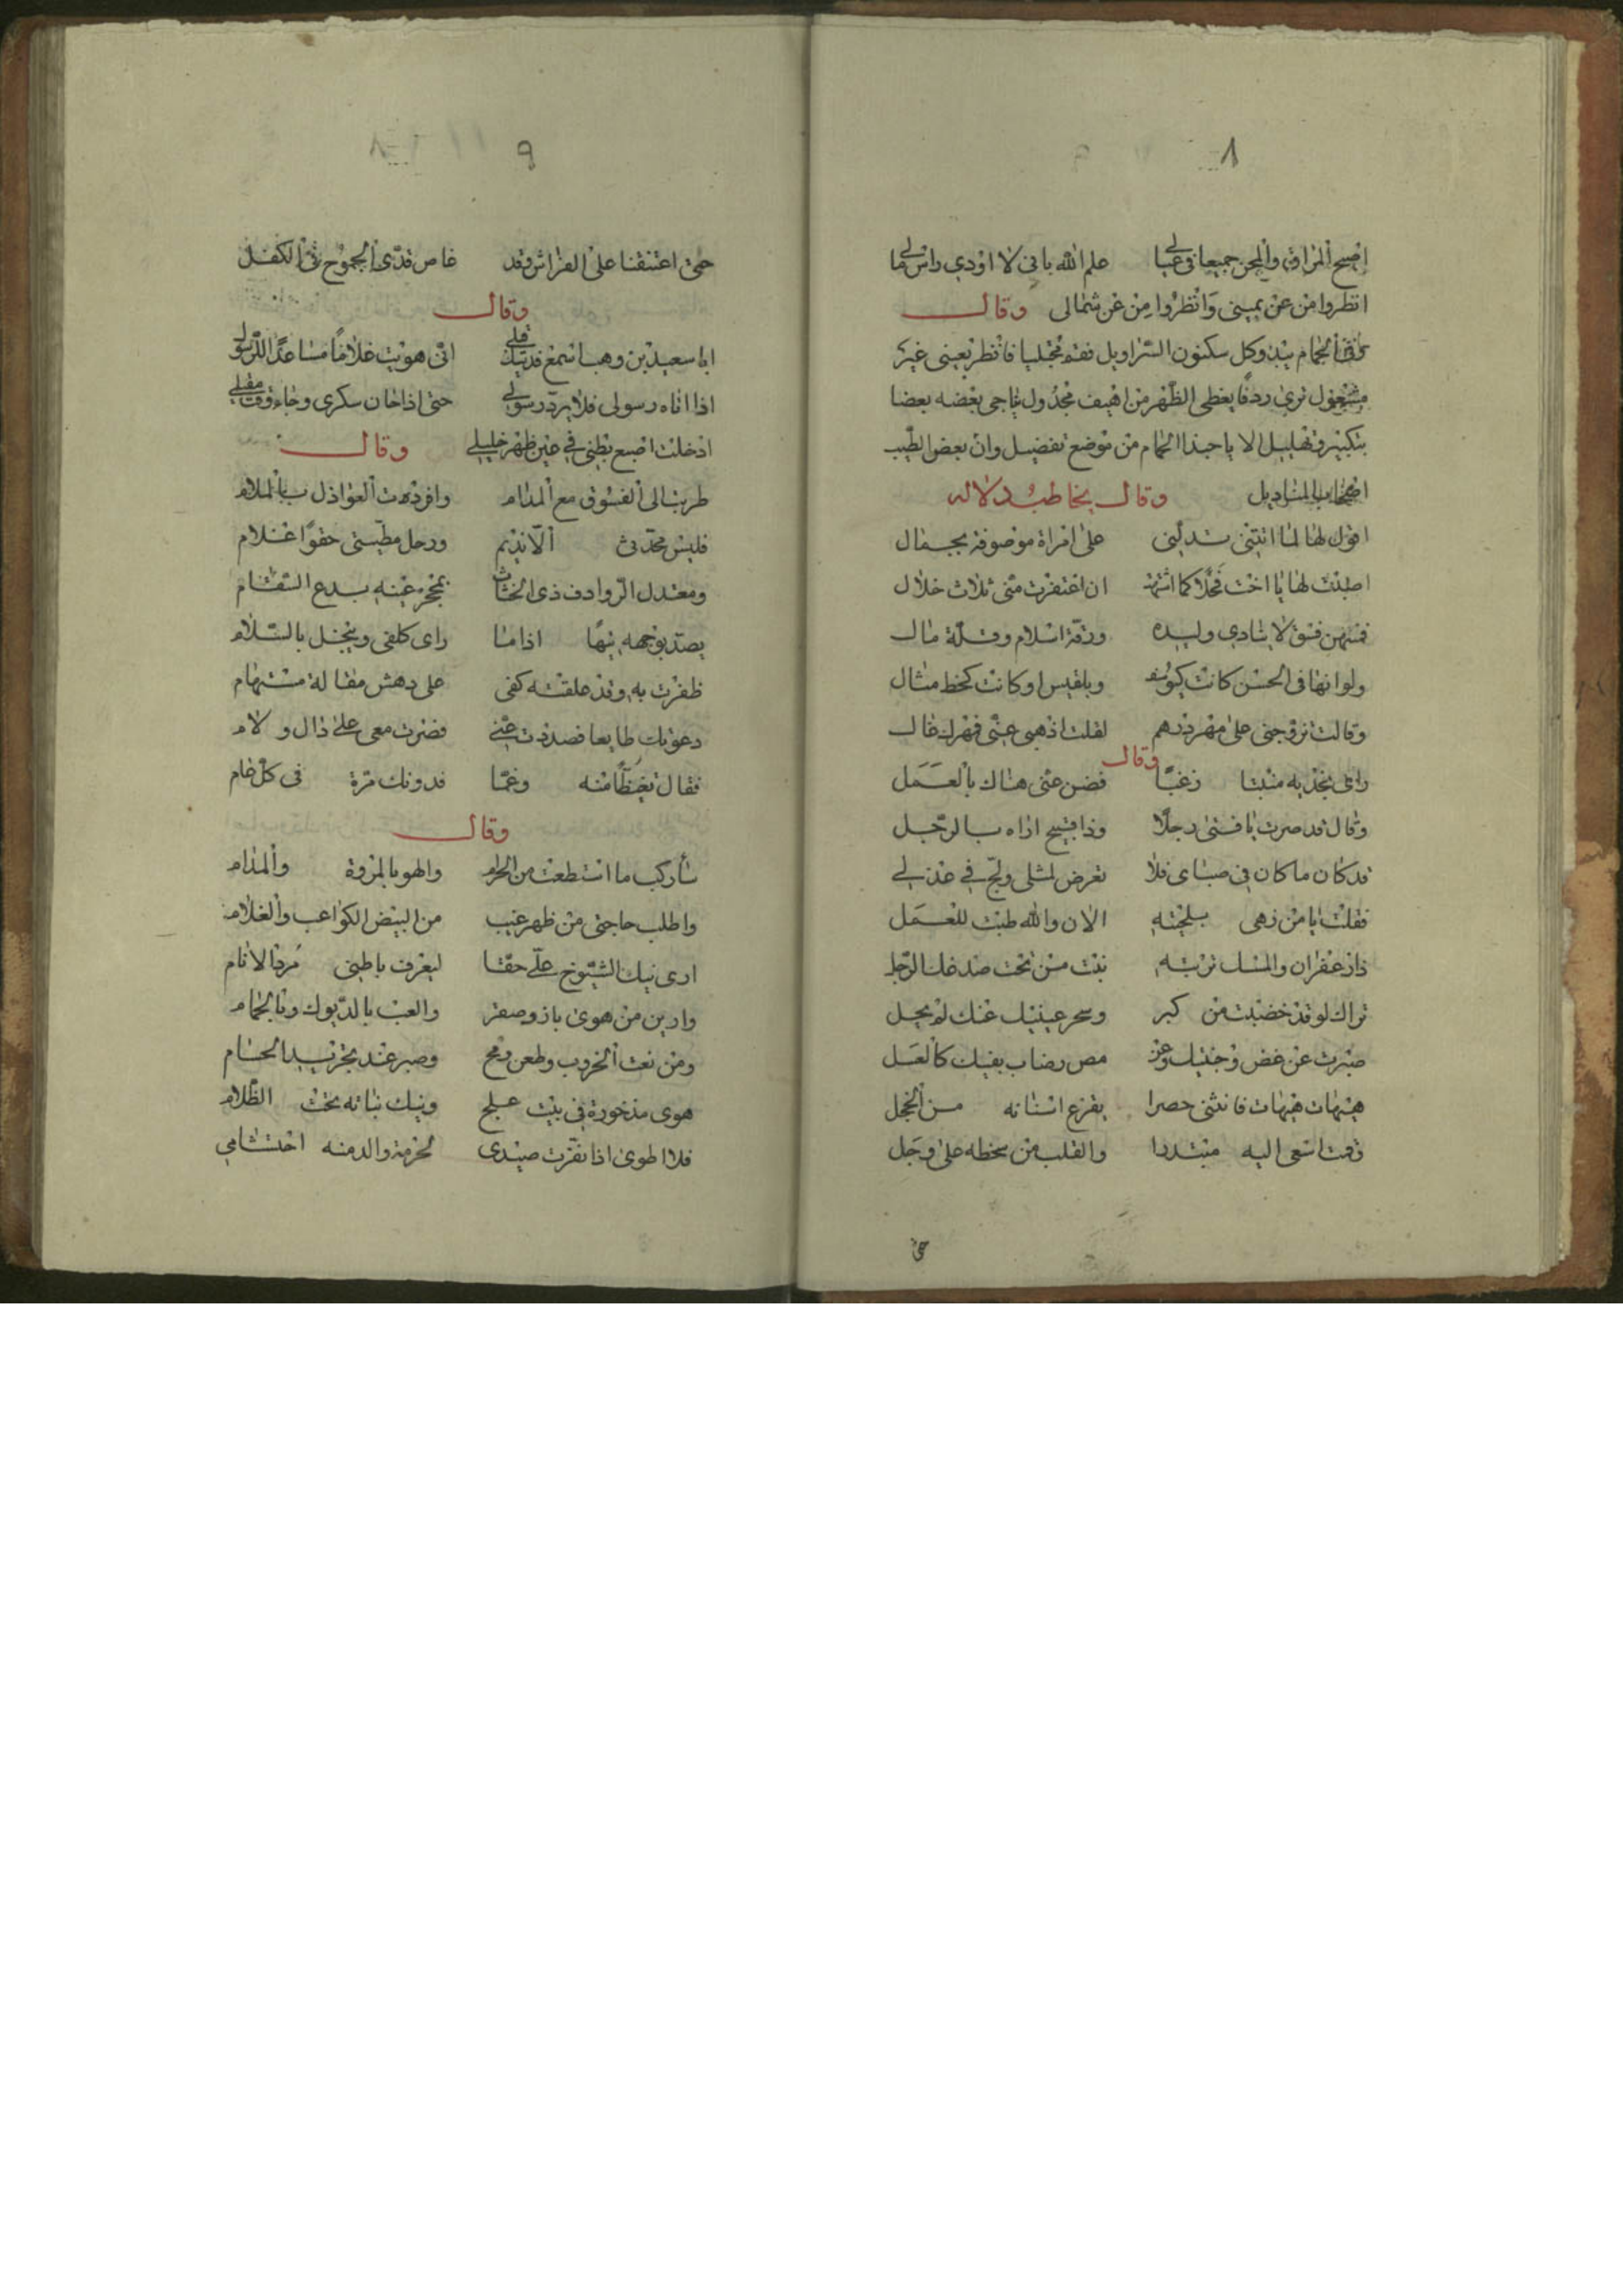 ٨
اصبح المرافق والمجن جميعا في عيالي علم الله باني لا اودي راس مالي
انظروا من عن يميني وانظروا من عن شمالي وقال
الحمام يبد وكل مكنون السراويل فقم مجتليا فانظر بعيني غير
مشغول تري ردفا يغطي الظهر من اهيف مجدول يناجي بعضه بعضا
بتكبير وتهليل الا يا حبذا الحمام من موضع تفضيل وان بعض الطيب
اصحاب المناديل وقال يخاطب دلاله
اقول لها لما اتتني تدلني على امراة موصوفة بجمال
اصبت لها يا اخت فحلا كما اشتهت ان اغتفرت مني ثلاث خلال
فمنهن فسق لا ينادي وليده ورقة اسلام وقلة مال
ولو انها في الحسن كانت كيوسف وبلقيس او كانت كخط مثال
وقالت تزوجني على مهر درهم لقلت اذهبي عني فمهرك غال
وقال
راى بخديه منبتا زغبا فضن عني هناك بالعمل
وقال قد صرت يا فتى رجلا وذا قبيح اراه بالرجل
قد كان ما كان في صباي فلا تعرض لمثلي ولج في عذلي
فقلت يا من زهى بلحيته الان والله طبت للعمل
ذا زعفران والمسك تربته نبت من تحت صدغك الرجل
تراك لو قد خضبت من كبر وسحر عينيك عنك لم يحل
صبرت عن غض وجنتيك وعن مص رضاب بفيك كالعسل
هيهات هيهات فانثنى حصرا يقرع اسنانه من الخجل
وقمت اسعى اليه مبتدرا والقلب من سخطه على وجل
حتى
٩
حتى اعتنقنا على الفراش وقد غاص قدى الجموح في الكفل
وقال
ابا سعيد بن وهب اسمع فديتك قلي اني هويت غلاما مساعدا
اذا اتاه رسولي فلا يرد رسولي حتى اذا خان سكرى وجاء وقت مقيلي
ادخلت اصبع بطني في عين ظهر خليلي وقال
طربت الى الفسوق مع المدام وافردت العواذل بالملام
فليس محدثي الا نديم ورحل مطيتي حقوا غلام
ومعتدل الروادف ذي انخناث بمحجر عينه بدع السقام
يصد بوجهه تيها اذا ما راى كلفي ويبخل بالسلام
ظفرت به وقد علقته كفي على دهش مقالة مستهام
دعوتك طايعا فصددت عني فصرت معي على ذال ولام
فقال تغيظا منه وغما فدونك مرة في كل عام
وقال
ساركب ما استطعت من الحرام والهو بالمزوة والمدام
واطلب حاجتي من ظهر غيب من البيض الكواعب والغلام
ارى نيك الشيوخ علي حقا ليعرف باطني مرد الانام
وادين من هوى باز وصقر والعب بالديوك وبالحمام
ومن نعت الحروب وطعن رمح وصبر عند تجريد الحسام
هوى مذخورة في بيت علج ونيك نباته تحت الظلام
فلا اطوى اذا نفرت صيدى لحرمة والدمنه احتشامي